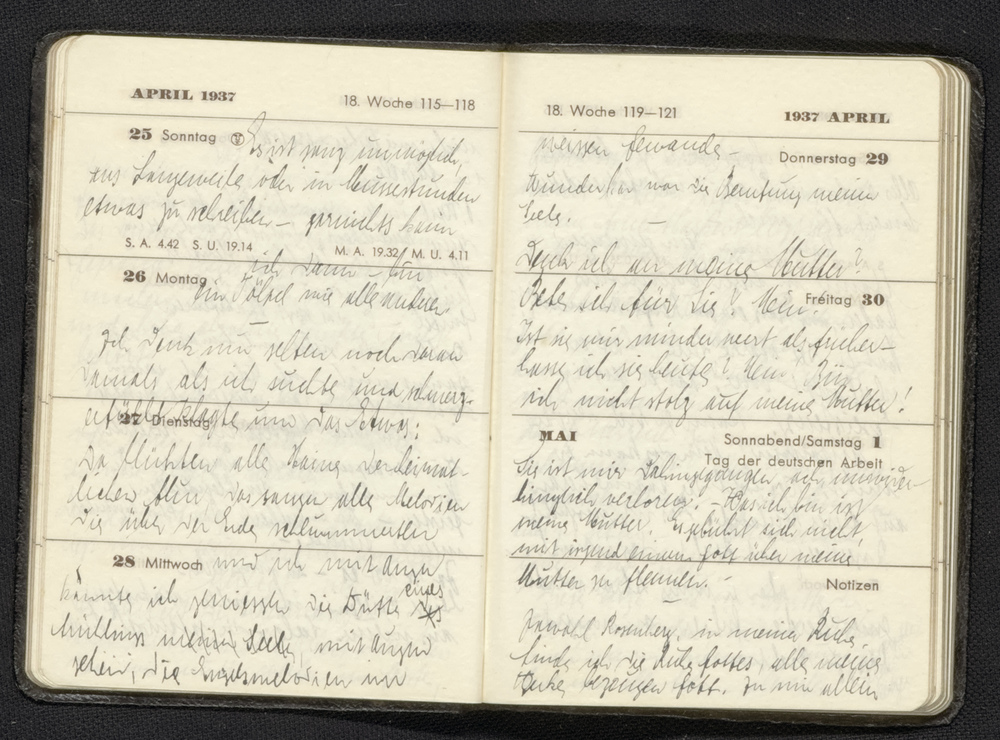 APRIL 1937
18. Woche 115—118
25 Sonntag
Es ist ganz unmöglich,
aus Langeweile oder in Mussestunden
etwas zu schreiben — garnichts kann
S. A. 4.42 S. U. 19.14 M. A. 19.32 M. U. 4.11
ich dann — bin
26 Montag
ein Tölpel wie alle andern
—
Ich denk nun selten noch daran
damals als ich suchte und schmerz-
erfüllt klagte um das Etwas:
27 Dienstag
Da flüchten alle Haine der heimat-
lichen Flur, das sangen alle Melodien
die über der Erde schlummerten
28 Mittwoch
und ich mit Augen
könnte ich geniessen die Düfte eines
Frühlings meiner Seele, mit Augen
sehen, die Engelsmelodien in
18. Woche 119—121
1937 APRIL
weissen Gewande —
Donnerstag 29
Wunderbar war die Berufung meiner
Seele.
—
Denk ich an meine Mutter?
Bete ich für Sie? Nein.
Freitag 30
Ist sie mir minder wert als früher —
hasse ich sie heute? Nein! Bin
ich nicht stolz auf meine Mutter!
MAI
Sonnabend/Samstag 1
Tag der deutschen Arbeit
Sie ist mir dahingegangen auf unwieder-
bringlich verloren. Was ich bin ist
meine Mutter. Es gebührt sich nicht,
mit irgend einem Gott über meine
Mutter zu flennen. —
Notizen
Jawohl Rosenberg, in meiner Ruhe
finde ich die Ruhe Gottes, alle meine
Werke bezeugen Gott. In mir allein